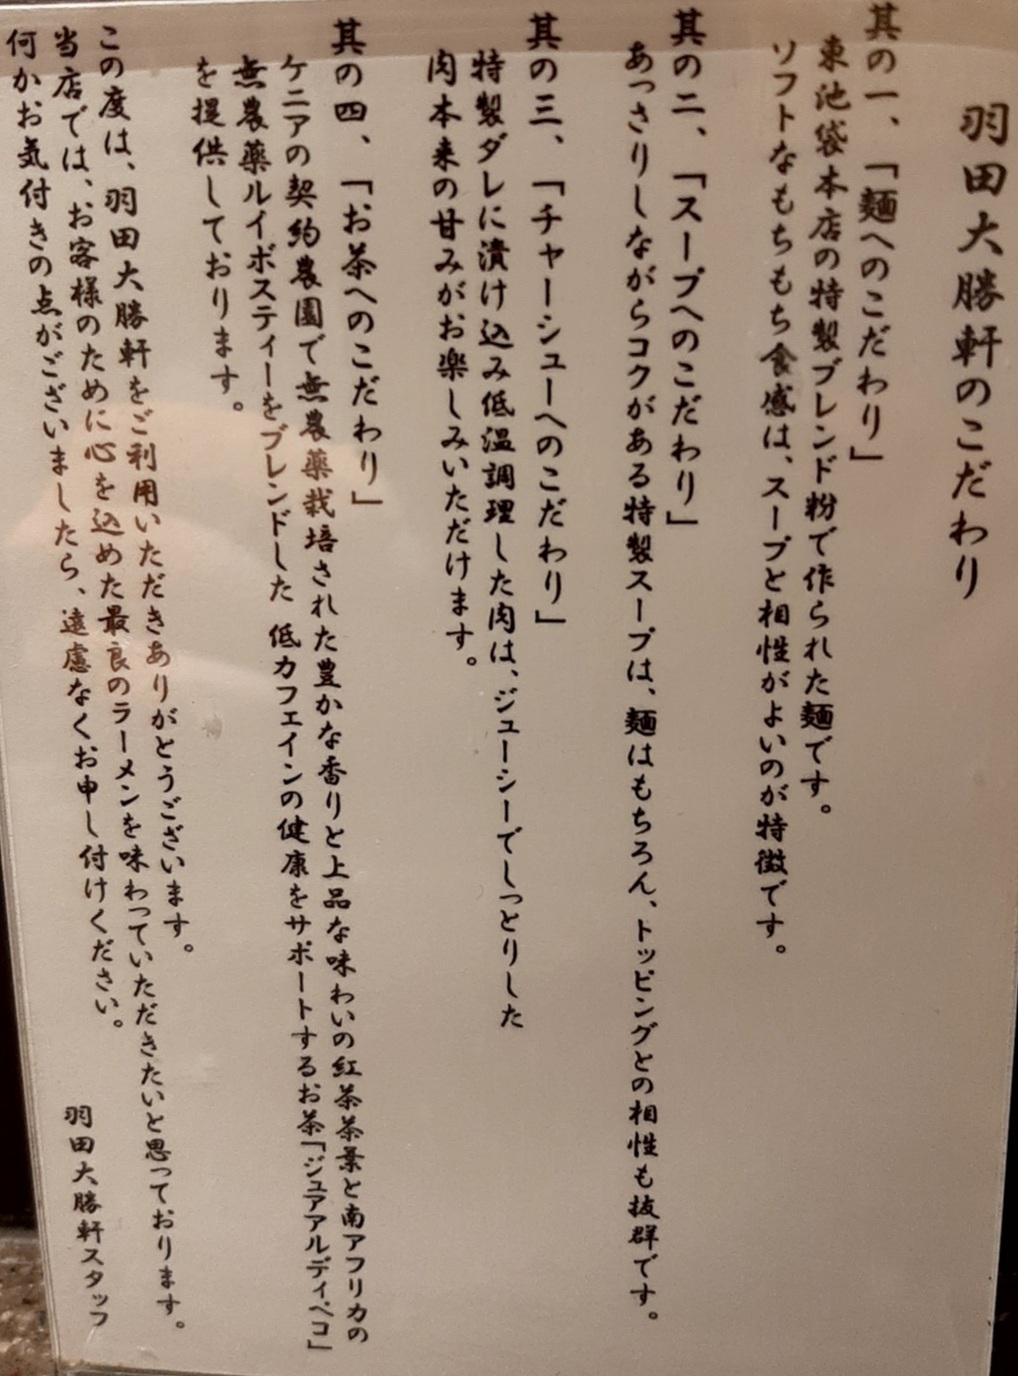 羽田大勝軒のこだわり
其の一、「麺へのこだわり」
東池袋本店の特製ブレンド粉で作られた麺です。
ソフトなもちもち食感は、スープと相性がよいのが特徴です。
其の二、「スープへのこだわり」
あっさりしながらコクがある特製スープは、麺はもちろん、トッピングとの相性も抜群です。
其の三、「チャーシューへのこだわり」
特製ダレに漬け込み低温調理した肉は、ジューシーでしっとりした
肉本来の甘みがお楽しみいただけます。
其の四、「お茶へのこだわり」
ケニアの契約農園で無農薬栽培された豊かな香りと上品な味わいの紅茶茶葉と南アフリカの
無農薬ルイボスティーをブレンドした 低カフェインの健康をサポートするお茶「ジュアアルディペコ」
を提供しております。
この度は、羽田大勝軒をご利用いただきありがとうございます。
当店では、お客様のために心を込めた最良のラーメンを味わっていただきたいと思っております。
何かお気付きの点がございましたら、遠慮なくお申し付けください。
羽田大勝軒スタッフ